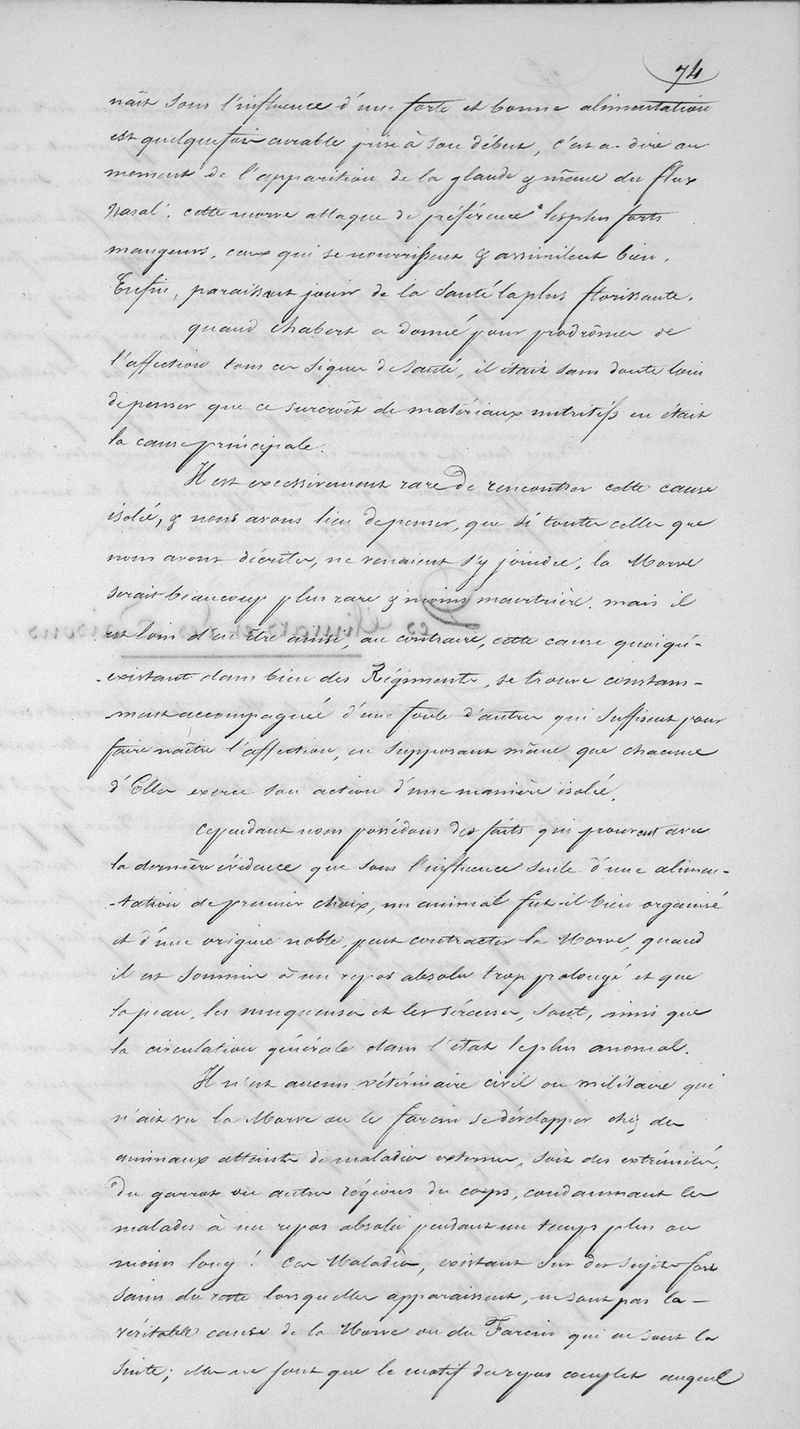 74
naît sous l'influence d'une forte et bonne alimentation
est quelquefois curable prise à son début, c'est a-dire au
moment de l'apparition de la glande & même du flux
nasal. cette morve attaque de préférence les plus forts
mangeurs, ceux qui se nourrissent & assimilent bien.
Enfin, paraissant jouir de la Santé la plus florissante.
quand Chabert a donné pour prodrômes de
l'affection tous ces signes de Santé, il était sans doute loin
de penser que ce surcroît de matériaux nutritifs en était
la cause principale.
Il est excessivement rare de rencontrer cette cause
isolée, & nous avons lieu de penser, que si toutes celles que
nous avons décrites, ne venaient s'y joindre, la Morve
serait beaucoup plus rare & moins meurtrière. mais il
est loin d'en être ainsi, au contraire, cette cause quoiqu'-
-existant dans bien des Régiments, se trouve constam-
-ment accompagnée d'une foule d'autres qui suffisent pour
faire naître l'affection, en supposant même que chacune
d'Elles exerce son action d'une manière isolée.
Cependant nous possédons des faits qui prouvent avec
la dernière évidence que sous l'influence seule d'une alimen-
-tation de premier choix, un animal fut-il bien organisé
et d'une origine noble, peut contracter la Morve, quand
il est soumis à un repos absolu trop prolongé et que
la peau, les muqueuses et les séreuses, sont, ainsi que
la circulation générale dans l'état le plus anomal.
Il n'est aucun vétérinaire civil ou militaire qui
n'ait vu la Morve ou le farcin se développer chez des
animaux atteints de maladies externes, soit des extrémités,
du garrot ou autres régions du corps, condamnant les
malades à un repos absolu pendant un temps plus ou
moins long! Ces Maladies, existant sur des sujets fort
sains du reste lorsqu'elles apparaissent, ne sont pas la-
véritable cause de la Morve ou du Farcin qui en sont la
suite; elles ne sont que le motif du repos complet auquel